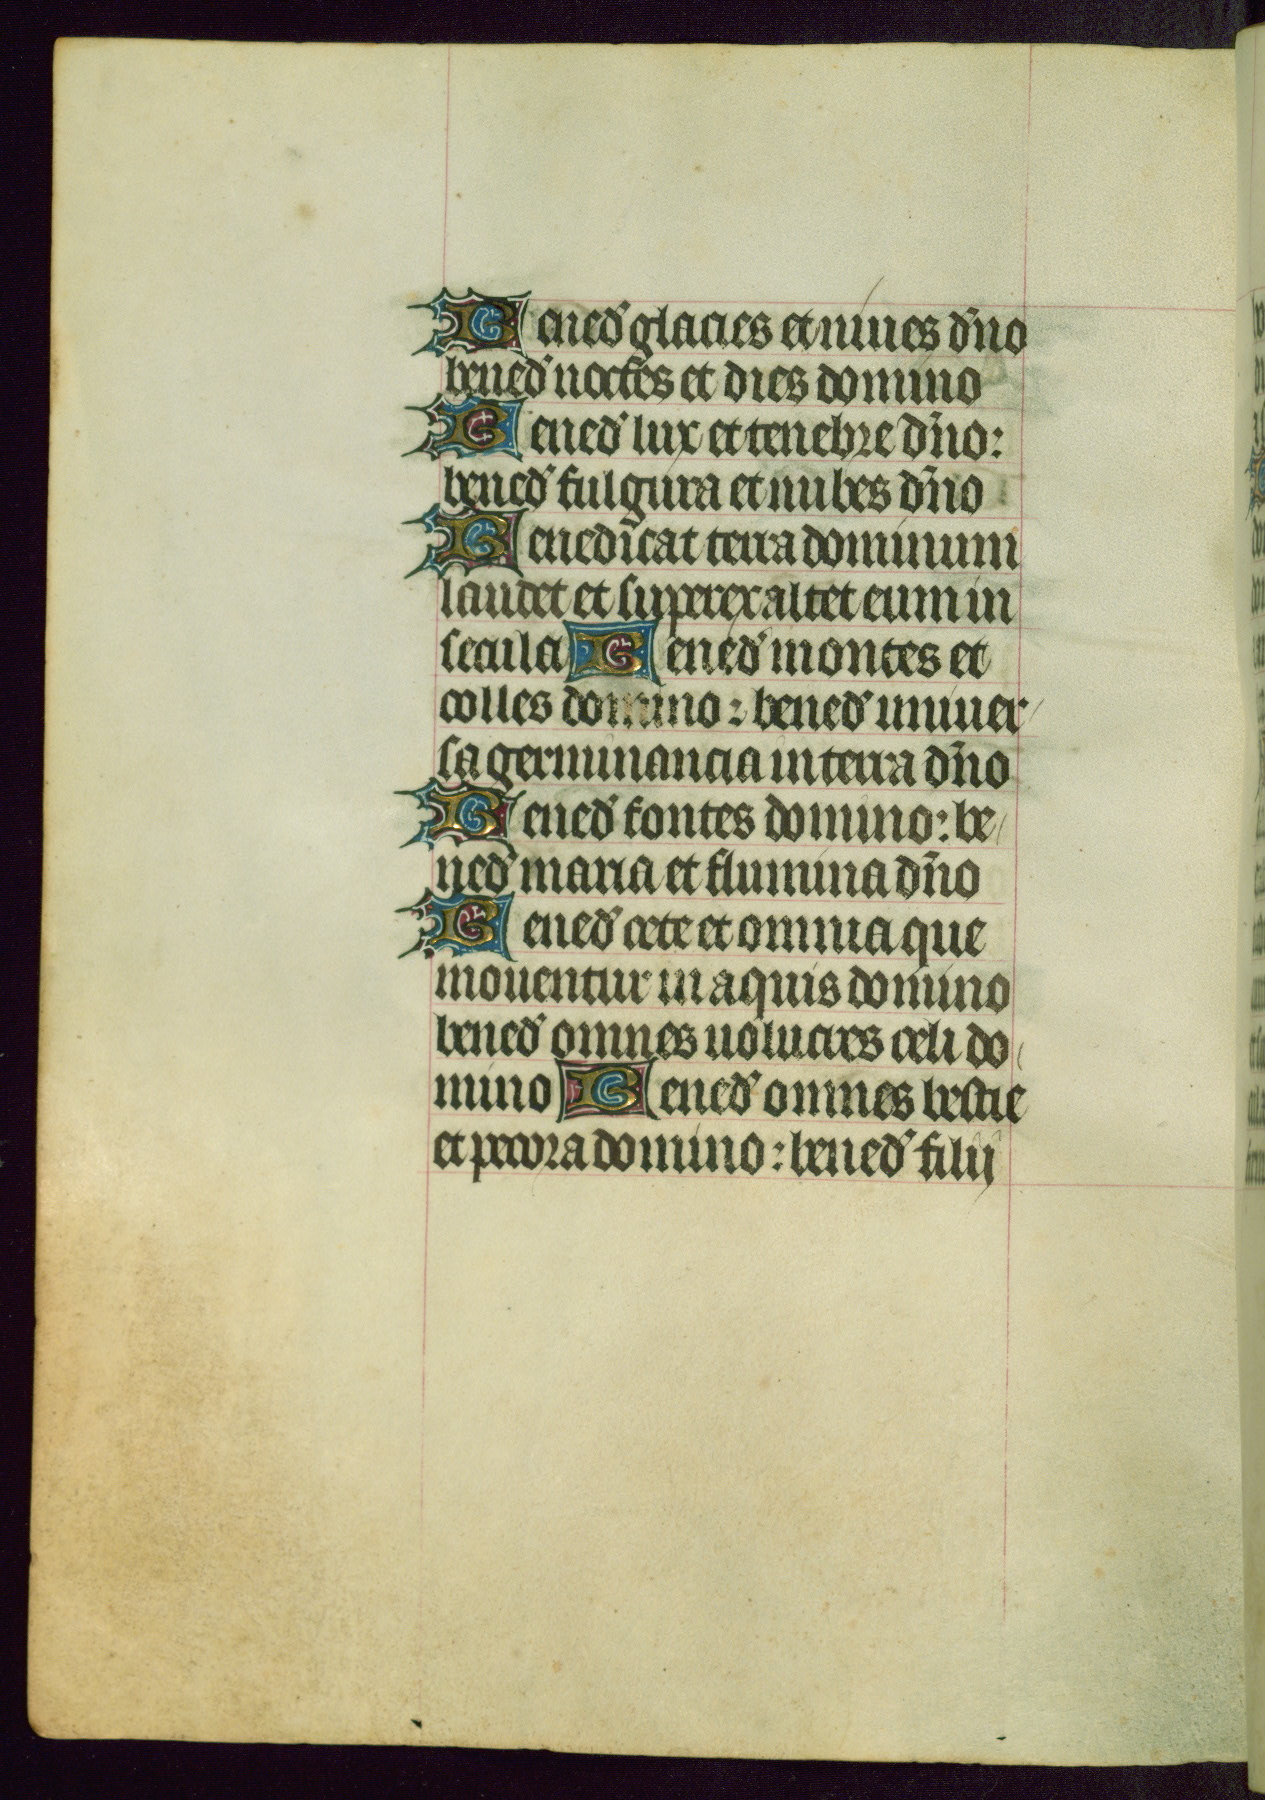 Bened' glacies et niues dn̄o
bened' noctes et dies domino
Bened' lux et tenebre dn̄o:
bened' fulgura et nubes dn̄o
Benedīcat terra dominum
laudet et superexaltet eum in
secula Bened' montes et
colles domino: bened' uniuer
sa germinancia in terra dn̄o
Bened' fontes domino: be
ned' maria et flumina dn̄o
Bened' cete et omnia que
mouentur in aquis domino
bened' omnes uolucres celi do
mino Bened' omnes bestie
et pecora domino: bened' filij